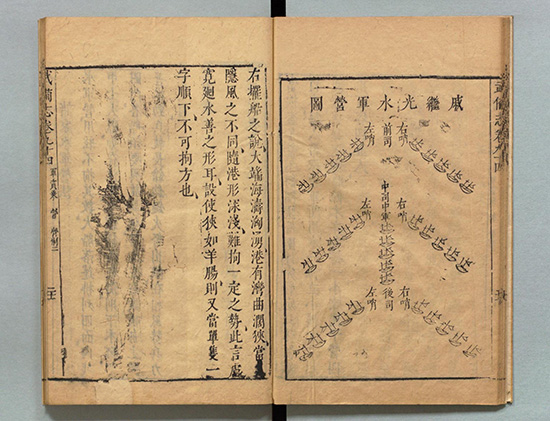 戚繼光水軍營圖
右哨
前司
左哨
右哨
中司中軍
左哨
右哨
後司
左哨
右擺船之說大端海濤洶湧港有灣曲濶狹當
隱風之不同隨港形深淺難拘一定之勢此言處
寛廻水善之形耳設使狹如羊腸則又當單隻一
字順下不可拘方也
武備志卷九十四 軍資乘 營 營制二